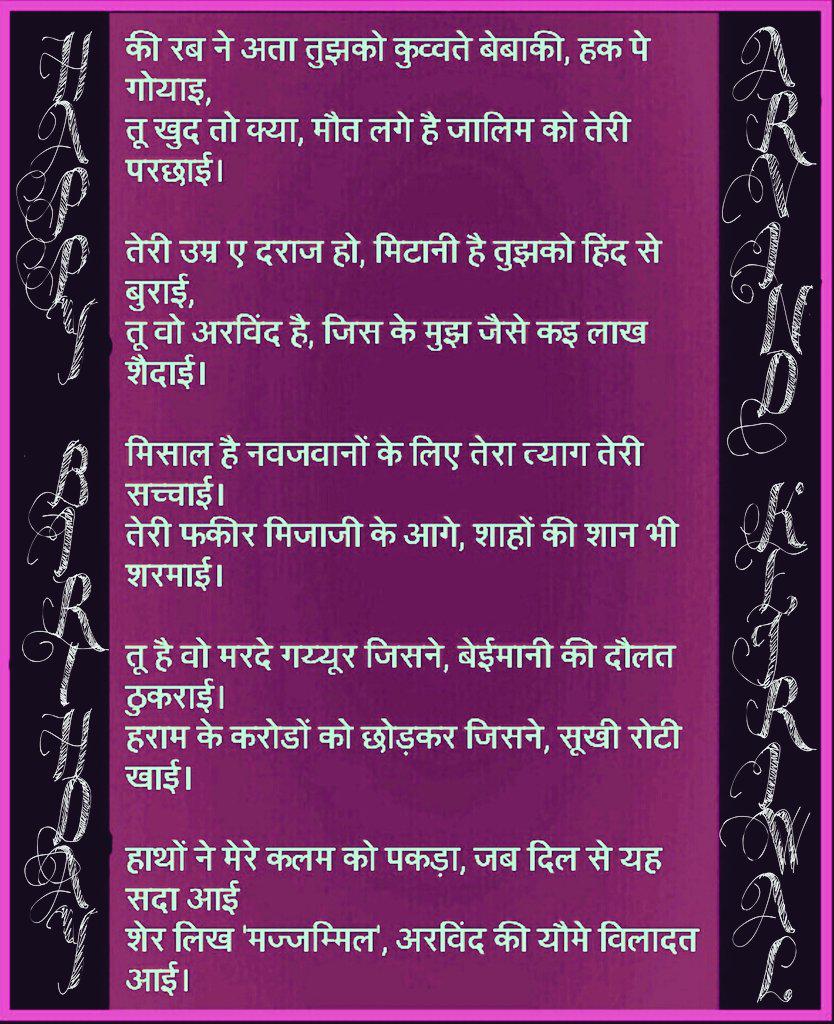 HAPPY BIRTHDAY
की रब ने अता तुझको कुव्वते बेबाकी, हक पे
गोयाइ,
तू खुद तो क्या, मौत लगे है जालिम को तेरी
परछाई।
तेरी उम्र ए दराज हो, मिटानी है तुझको हिंद से
बुराई,
तू वो अरविंद है, जिस के मुझ जैसे कइ लाख
शैदाई।
मिसाल है नवजवानों के लिए तेरा त्याग तेरी
सच्चाई।
तेरी फकीर मिजाजी के आगे, शाहों की शान भी
शरमाई।
तू है वो मरदे गय्यूर जिसने, बेईमानी की दौलत
ठुकराई।
हराम के करोडों को छोड़कर जिसने, सूखी रोटी
खाई।
हाथों ने मेरे कलम को पकड़ा, जब दिल से यह
सदा आई
शेर लिख 'मज्जम्मिल', अरविंद की यौमे विलादत
आई।
ARVIND KEJRIWAL